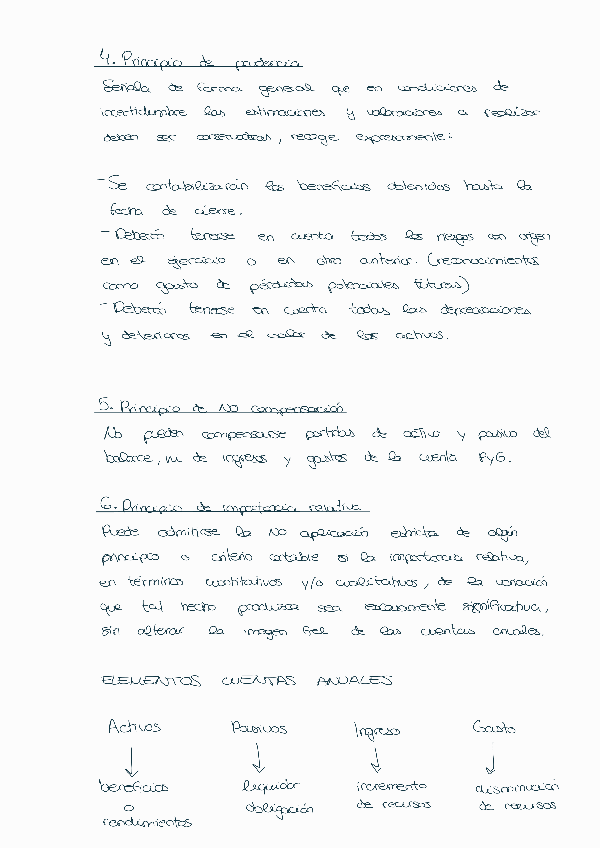 4. Principio de prudencia
Señala de forma general que en condiciones de
incertidumbre las estimaciones y valoraciones a realizar
deben ser conservadoras, recoge expresamente:
- Se contabilizarán los beneficios obtenidos hasta la
fecha de cierre.
- Deberán tenerse en cuenta todos los riesgos con origen
en el ejercicio o en otro anterior. (reconocimientos
como gasto de pérdidas potenciales futuras)
- Deberán tenerse en cuenta todas las depreciaciones
y deterioros en el valor de los activos.
5. Principio de No compensación
No pueden compensarse partidas de activo y pasivo del
balance, ni de ingresos y gastos de la cuenta PyG.
6. Principio de importancia relativa
Puede admitirse la NO aplicación estricta de algún
principio o criterio contable si la importancia relativa,
en términos cuantitativos y/o cualitativos, de la variación
que tal hecho produzca sea escasamente significativa,
sin alterar la imagen fiel de las cuentas anuales.
ELEMENTOS CUENTAS ANUALES
Activos Pasivos Ingreso Gasto
↓ ↓ ↓ ↓
beneficios liquidar incremento disminución
o obligación de recursos de recursos
rendimientos